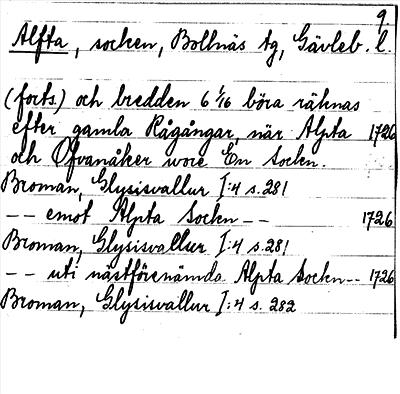 9
Alfta, socken, Bollnäs tg, Gävleb. l.
(forts.) och bredden 6 1/16 böra räknas
efter gamla Rågångar, när Alpta 1726
och Ofvanåker wore En Socken.
Broman, Glysisvallur I:4 s. 281
-- emot Alpta Socken -- 1726
Broman, Glysisvallur I:4 s. 281
-- uti nästförenämda Alpta Socken -- 1726
Broman, Glysisvallur I:4 s. 282